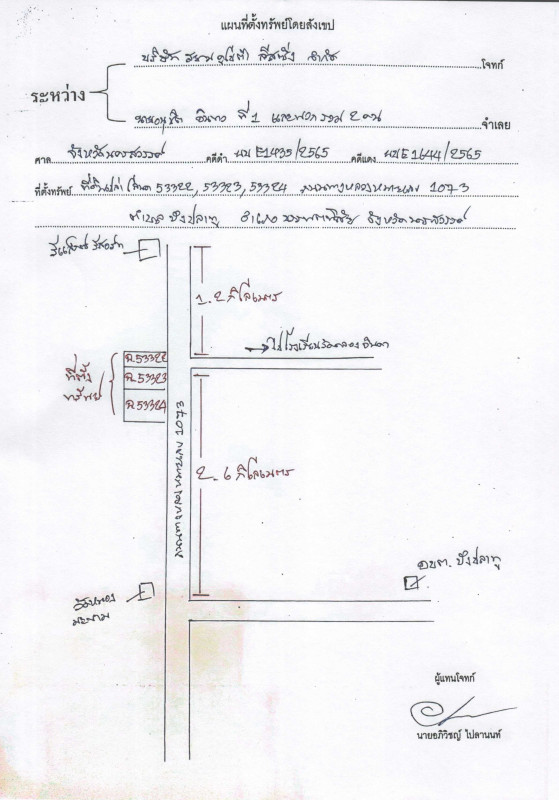 แผนที่ตั้งทรัพย์โดยสังเขป
บริษัท สยาม คูโบต้า ลีสซิ่ง จำกัด โจทก์
ระหว่าง
ที่ 1 และพวกรวม 2 คน จำเลย
ศาล จังหวัดนครสวรรค์ คดีดำ ผบ E1435/2565 คดีแดง ผบE1644/2565
ที่ตั้งทรัพย์ ที่ดินเปล่า โฉนด 53322, 53323, 53324 ถนนทางหลวงหมายเลข 1073
ตำบล บึงปลาทู อำเภอ บรรพตพิสัย จังหวัดนครสวรรค์
รีสอร์ท
1.2 กิโลเมตร
ไปโรงเรียนวัดคลองจินดา
ที่ตั้ง
ทรัพย์
ฉ.53322
ฉ.53323
ฉ.53324
ถนนทางหลวงหมายเลข 1073
2.6 กิโลเมตร
อบต. บึงปลาทู
วัดหนอง
มะขาม
ผู้แทนโจทก์
นายอภิวิชญ์ ไปลานนท์